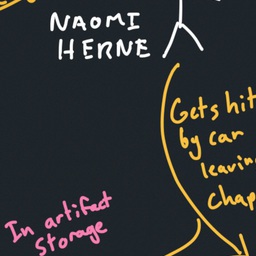 NAOMI
HERNE
Gets hit
by car
leavin
chap
In artifact
Storage